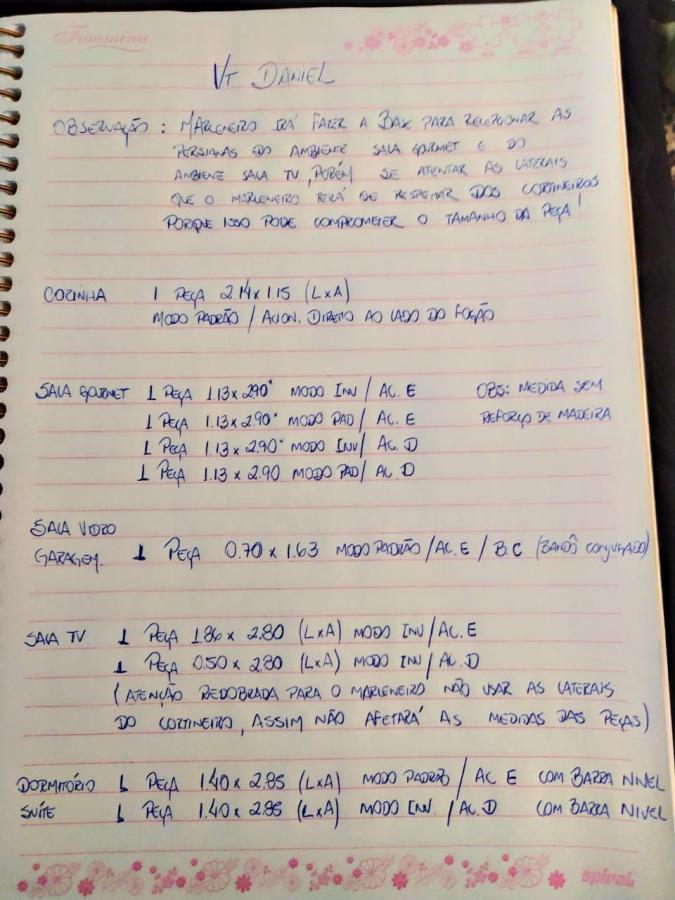 Femmina
VT DANIEL
OBSERVAÇÃO : MARCENEIRO IRÁ FAZER A BASE PARA RELECIONAR AS
PERSIANAS DO AMBIENTE SALA GOURMET E DO
AMBIENTE SALA TV, PORÉM SE ATENTAR AS LATERAIS
QUE O MARCENEIRO TERÁ DE RESPEITAR DOS CORTINEIROS
PORQUE ISSO PODE COMPROMETER O TAMANHO DA PEÇA!
COZINHA 1 PEÇA 2.14 x 1.15 (LxA)
MODO PADRÃO / ACION. DIREITO AO LADO DO FOGÃO
SALA GOURMET 1 PEÇA 1.13 x 290* MODO INV / AC. E OBS: MEDIDA SEM
1 PEÇA 1.13 x 2.90* MODO PAD / AC. E REFORÇO DE MADEIRA
1 PEÇA 1.13 x 2.90* MODO INV / AC. D
1 PEÇA 1.13 x 2.90 MODO PAD / AC. D
SALA VIDRO
GARAGEM. 1 PEÇA 0.70 x 1.63 MODO PADRÃO / AC. E / B.C (BANDÔ CONJUGADO)
SALA TV 1 PEÇA 1.86 x 2.80 (LxA) MODO INV / AC. E
1 PEÇA 0.50 x 280 (LxA) MODO INV / AC. D
(ATENÇÃO REDOBRADA PARA O MARCENEIRO NÃO USAR AS LATERAIS
DO CORTINEIRO, ASSIM NÃO AFETARÁ AS MEDIDAS DAS PEÇAS)
DORMITÓRIO 1 PEÇA 1.40 x 2.85 (LxA) MODO PADRÃO / AC E COM BARRA NIVEL
SUÍTE 1 PEÇA 1.40 x 2.85 (LxA) MODO INV. / AC. D COM BARRA NIVEL
spiral